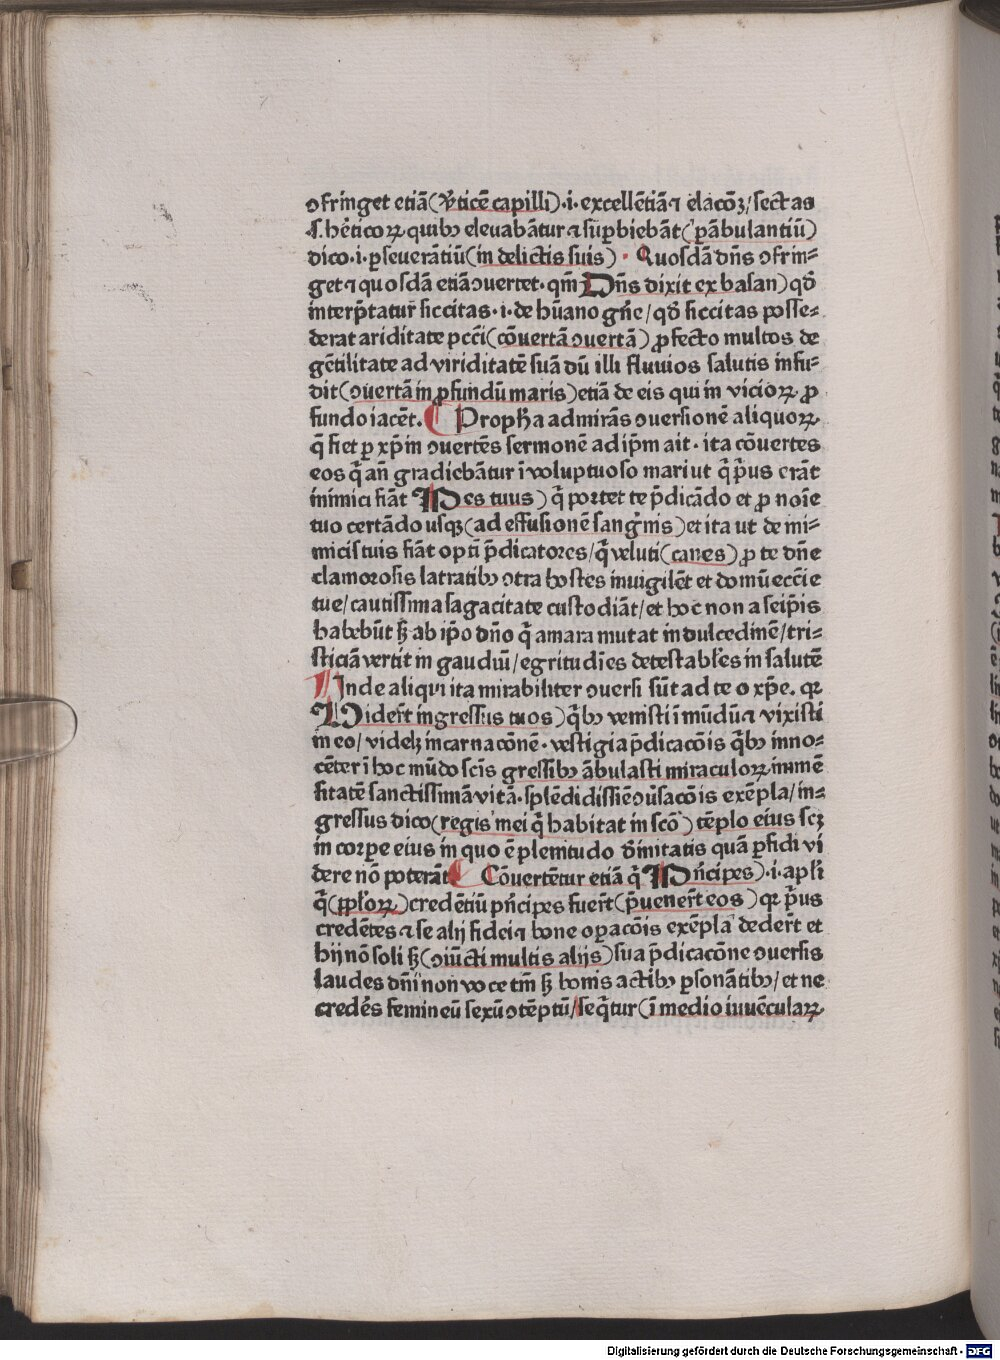 ↄfringet etiā (v̄ticē capilli) .i. excellētiā ⁊ elacōꝫ / sectas
.s. hētico⁊ꝝ quibꝯ eleuabātur ⁊ sup̱biebāt (p̱ābulantiū)
dico .i. p̱seuerātiū (in delictis suis) . Quosdā dn̄s ↄfrin⸗
get ⁊ quosdā etiā ↄuertet . qm̄ Dn̄s dixit ex basan) qđ
interp̄tatur siccitas .i. de hūano gn̄e / qđ siccitas posse⸗
derat ariditate pcc̄i (cōuertā ↄuertā) ꝓfecto multos de
gētilitate ad viriditatē suā dū illi fluuios salutis infu⸗
dit (ↄuertā in ꝓfundū maris) etiā de eis qui in vicioꝝ ꝓ
fundo iacēt. ¶ Propha admirās ↄuersionē aliquoꝝ
q̄ fiet ꝑ xp̄m ↄuertēs sermonē ad ip̄m ait . ita cōuertes
eos q̄ an̄ gradiebātur ī voluptuoso mari ut q̄ p̄us erāt
inimici fiāt Pes tuus) q̄ portet te p̄dicādo et ꝓ noīe
tuo certādo usqꝫ (ad effusionē sangīnis) et ita ut de ini⸗
micis tuis fiāt optī p̄dicatores / q̄ veluti (canes) ꝓ te dn̄e
clamorosis latratibꝯ ↄtra hostes inuigilēt et domū ecc̄ie
tue / cautissima sagacitate custodiāt / et hoc non a seip̄is
habebūt sꝫ ab ip̄o dn̄o q̄ amara mutat in dulcedinē / tri⸗
sticiā vertit in gaudiū / egritudīes detestabl̄es in salutē
Unde aliqui ita mirabiliter ↄuersi sūt ad te o xp̄e. qꝛ
Viderūt ingressus tuos) q̄bꝯ venisti ī mūdū ⁊ vixisti
in eo / videlꝫ incarnacōnē . vestigia p̄dicacōis q̄bꝯ inno⸗
cēter ī hoc mūdo sc̄is gressibꝯ ābulasti miraculoꝝ inmē
sitatē sanctissimā vitā . splēdidissīe ↄūsacōis exēpla / in⸗
gressus dico (regis mei q̄ habitat in scō) tēplo eius scꝫ
in corpe eius in quo ē plenitudo dīnitatis quā ꝑfidi vi
dere nō poterāt ¶ Cōuertētur etiā q̄ Prīcipes) .i. apl̄i
q̄ (pp̄loꝝ) credētiū pn̄cipes fuer̄t (p̄uener̄t eos) qꝛ p̄us
credētes ⁊ se alij fidei ⁊ bone oꝑacōis exēpla deder̄t et
hij nō soli sꝫ (ↄiūcti multis alijs) sua p̄dicacōne ↄuersis
laudes dn̄i non voce tm̄ sꝫ bonis actibꝯ ꝑsonātibꝯ / et ne
credēs femineū sexū ↄtēptū / seq̄tur (ī medio iuuēculaꝝ
Digitalisierung gefördert durch die Deutsche Forschungsgemeinschaft - DFG